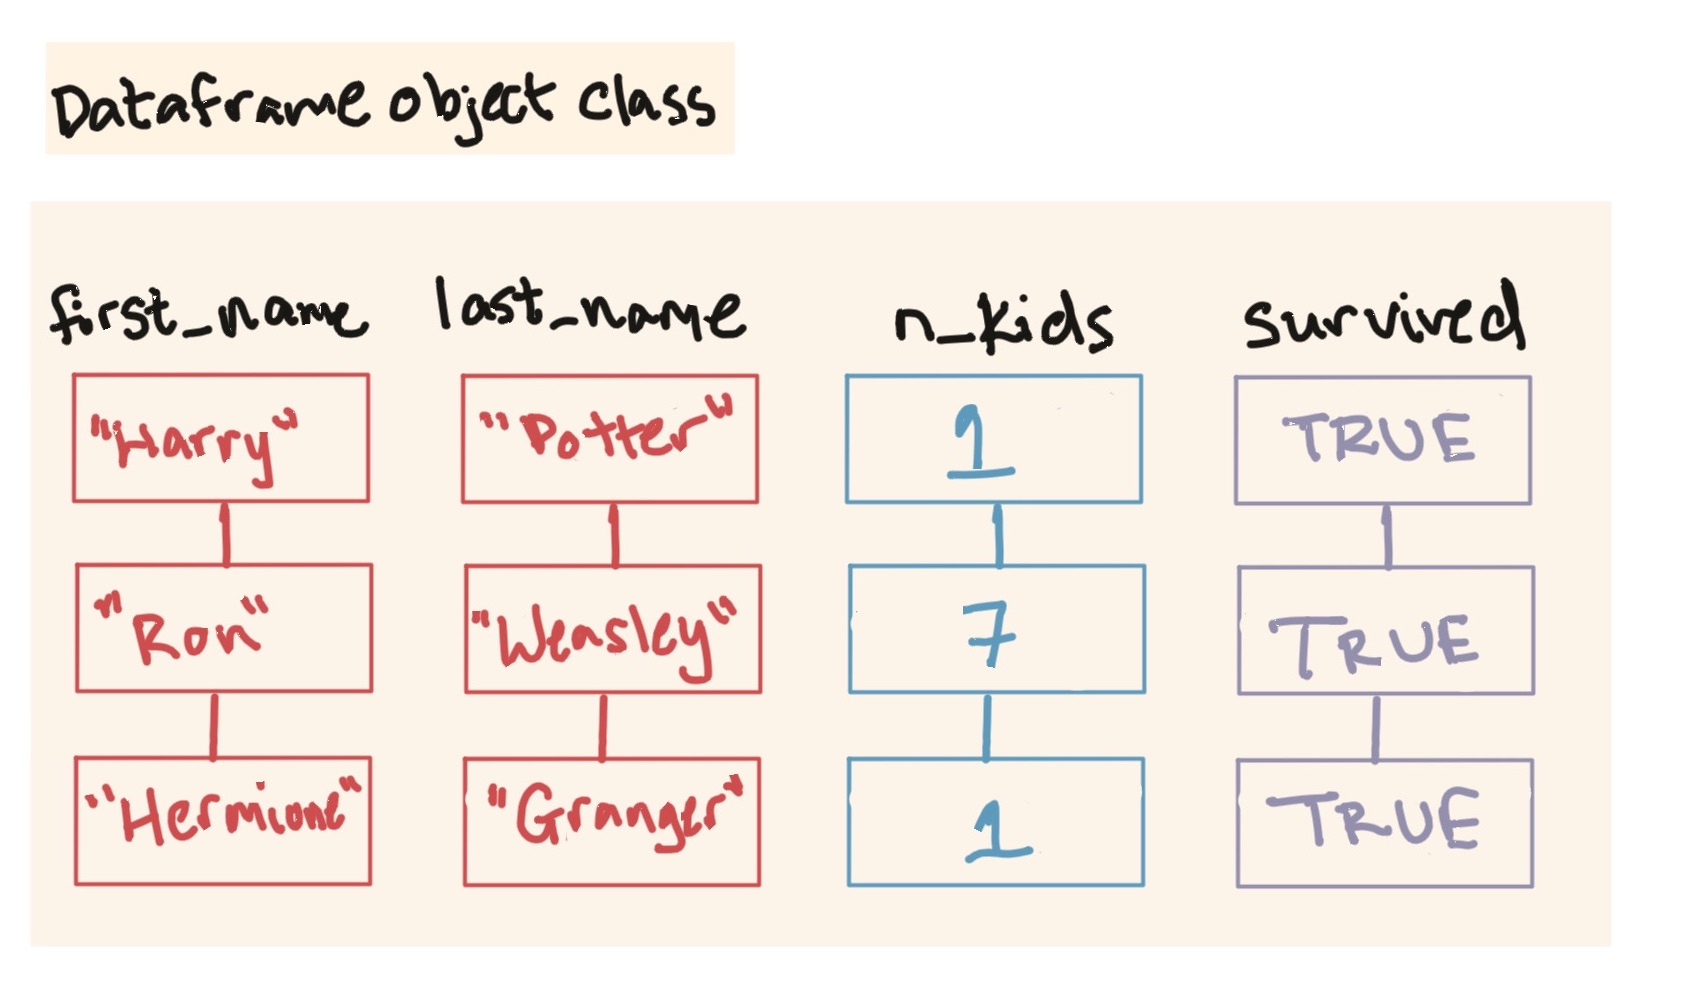 Dataframe object class
first_name last_name n_kids survived
"Harry" "Potter" 1 TRUE
"Ron" "Weasley" 7 TRUE
"Hermione" "Granger" 1 TRUE